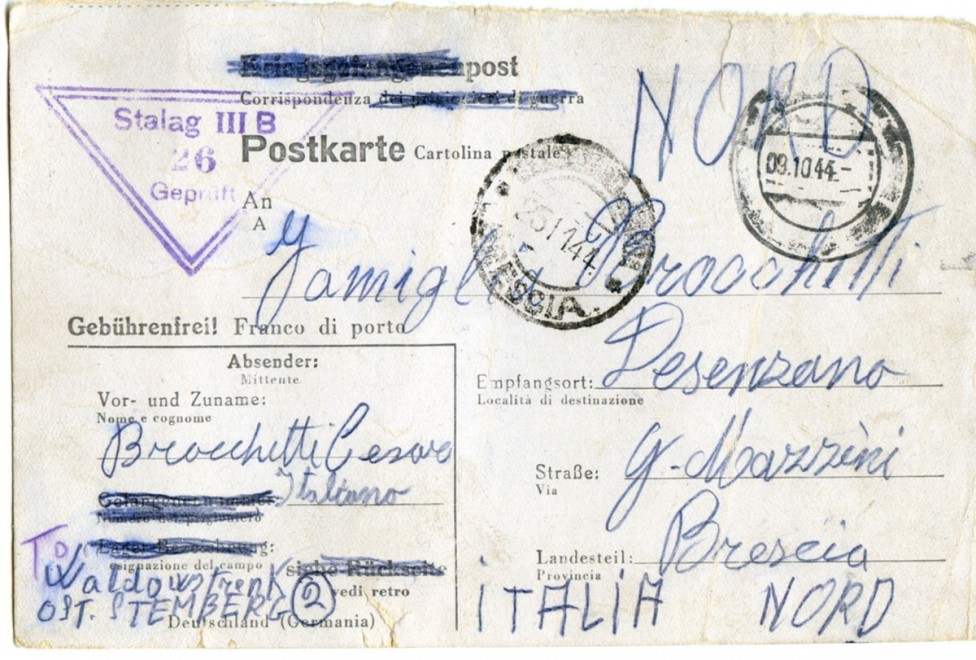 Kriegsgefangenenpost
Corrispondenza dei prigionieri di guerra
NORD
Stalag III B
26
Geprüft
Postkarte Cartolina postale
09.10.44.-
25.11.44.
BRESCIA
An
A
Famiglia Brocchetti
Gebührenfrei! Franco di porto
Absender:
Mittente
Vor- und Zuname:
Nome e cognome
Brocchetti Cesare
Italiano
Gefangenennummer:
Numero del prigioniero
Lager-Bezeichnung:
designazione del campo
siehe Rückseite
vedi retro
OST. STEMBERG 2
Deutschland (Germania)
Empfangsort: Desenzano
Località di destinazione
Straße: G. Mazzini
Via
Brescia
Landesteil:
Provincia
ITALIA NORD